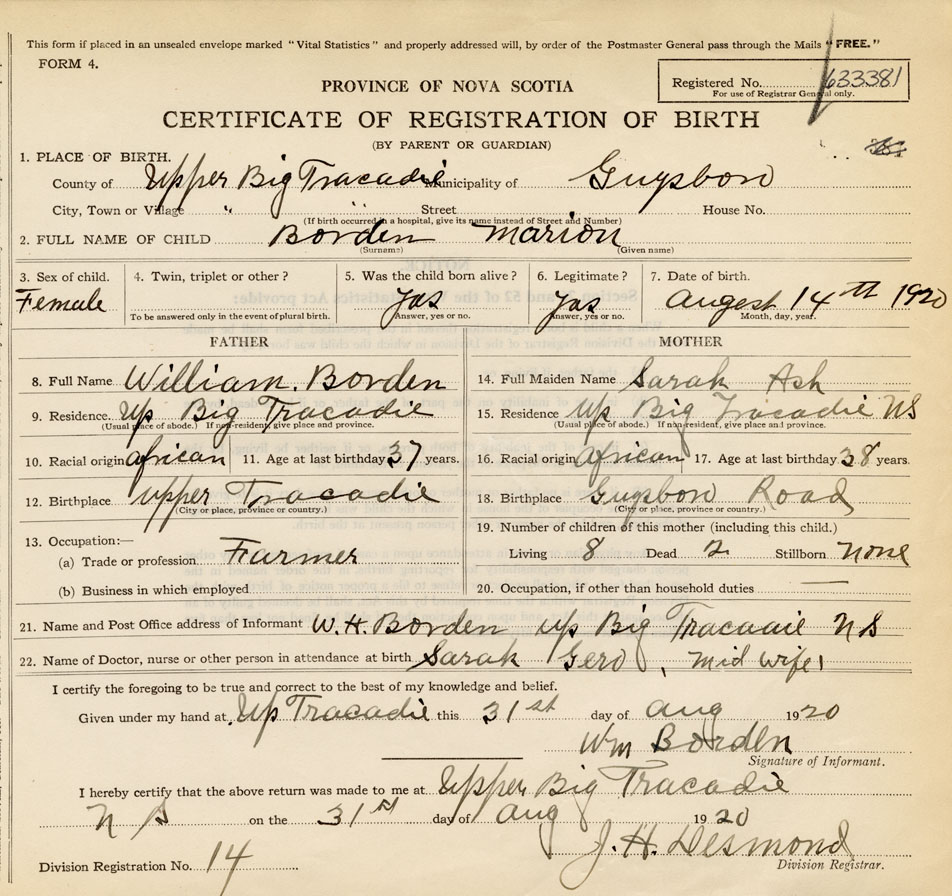 This form if placed in an unsealed envelope marked "Vital Statistics" and properly addressed will, by order of the Postmaster General pass through the Mails "FREE."
FORM 4.
Registered No. 633381
For use of Registrar General only.
PROVINCE OF NOVA SCOTIA
CERTIFICATE OF REGISTRATION OF BIRTH
(BY PARENT OR GUARDIAN)
1. PLACE OF BIRTH.
County of Upper Big Tracadie Municipality of Guysboro
City, Town or Village " " Street House No.
(If birth occurred in a hospital, give its name instead of Street and Number)
2. FULL NAME OF CHILD Borden Marion
(Surname) (Given name)
3. Sex of child. 4. Twin, triplet or other? 5. Was the child born alive? 6. Legitimate? 7. Date of birth.
Female yas yas Augest 14th 1920
To be answered only in the event of plural birth. Answer, yes or no. Answer, yes or no. Month, day, year.
FATHER MOTHER
8. Full Name William. Borden 14. Full Maiden Name Sarah Ash
9. Residence. Up Big Tracadie 15. Residence Up Big Tracadie NS
(Usual place of abode.) If non-resident, give place and province. (Usual place of abode.) If non-resident, give place and province.
10. Racial origin african 11. Age at last birthday 37 years. 16. Racial origin african 17. Age at last birthday 38 years.
12. Birthplace Upper Tracadie 18. Birthplace Guysboro Road
(City or place, province or country.) (City or place, province or country.)
19. Number of children of this mother (including this child.)
13. Occupation:—
(a) Trade or profession. Farmer Living 8 Dead 2 Stillborn None
(b) Business in which employed 20. Occupation, if other than household duties —
21. Name and Post Office address of Informant W. H. Borden Up Big Tracadie N S
22. Name of Doctor, nurse or other person in attendance at birth Sarah Gero, Mid Wife
I certify the foregoing to be true and correct to the best of my knowledge and belief.
Given under my hand at Up Tracadie this 31st day of aug 1920
Wm Borden
Signature of Informant.
I hereby certify that the above return was made to me at Upper Big Tracadie
N S on the 31st day of aug 1920
J. H. Desmond
Division Registration No. 14 Division Registrar.